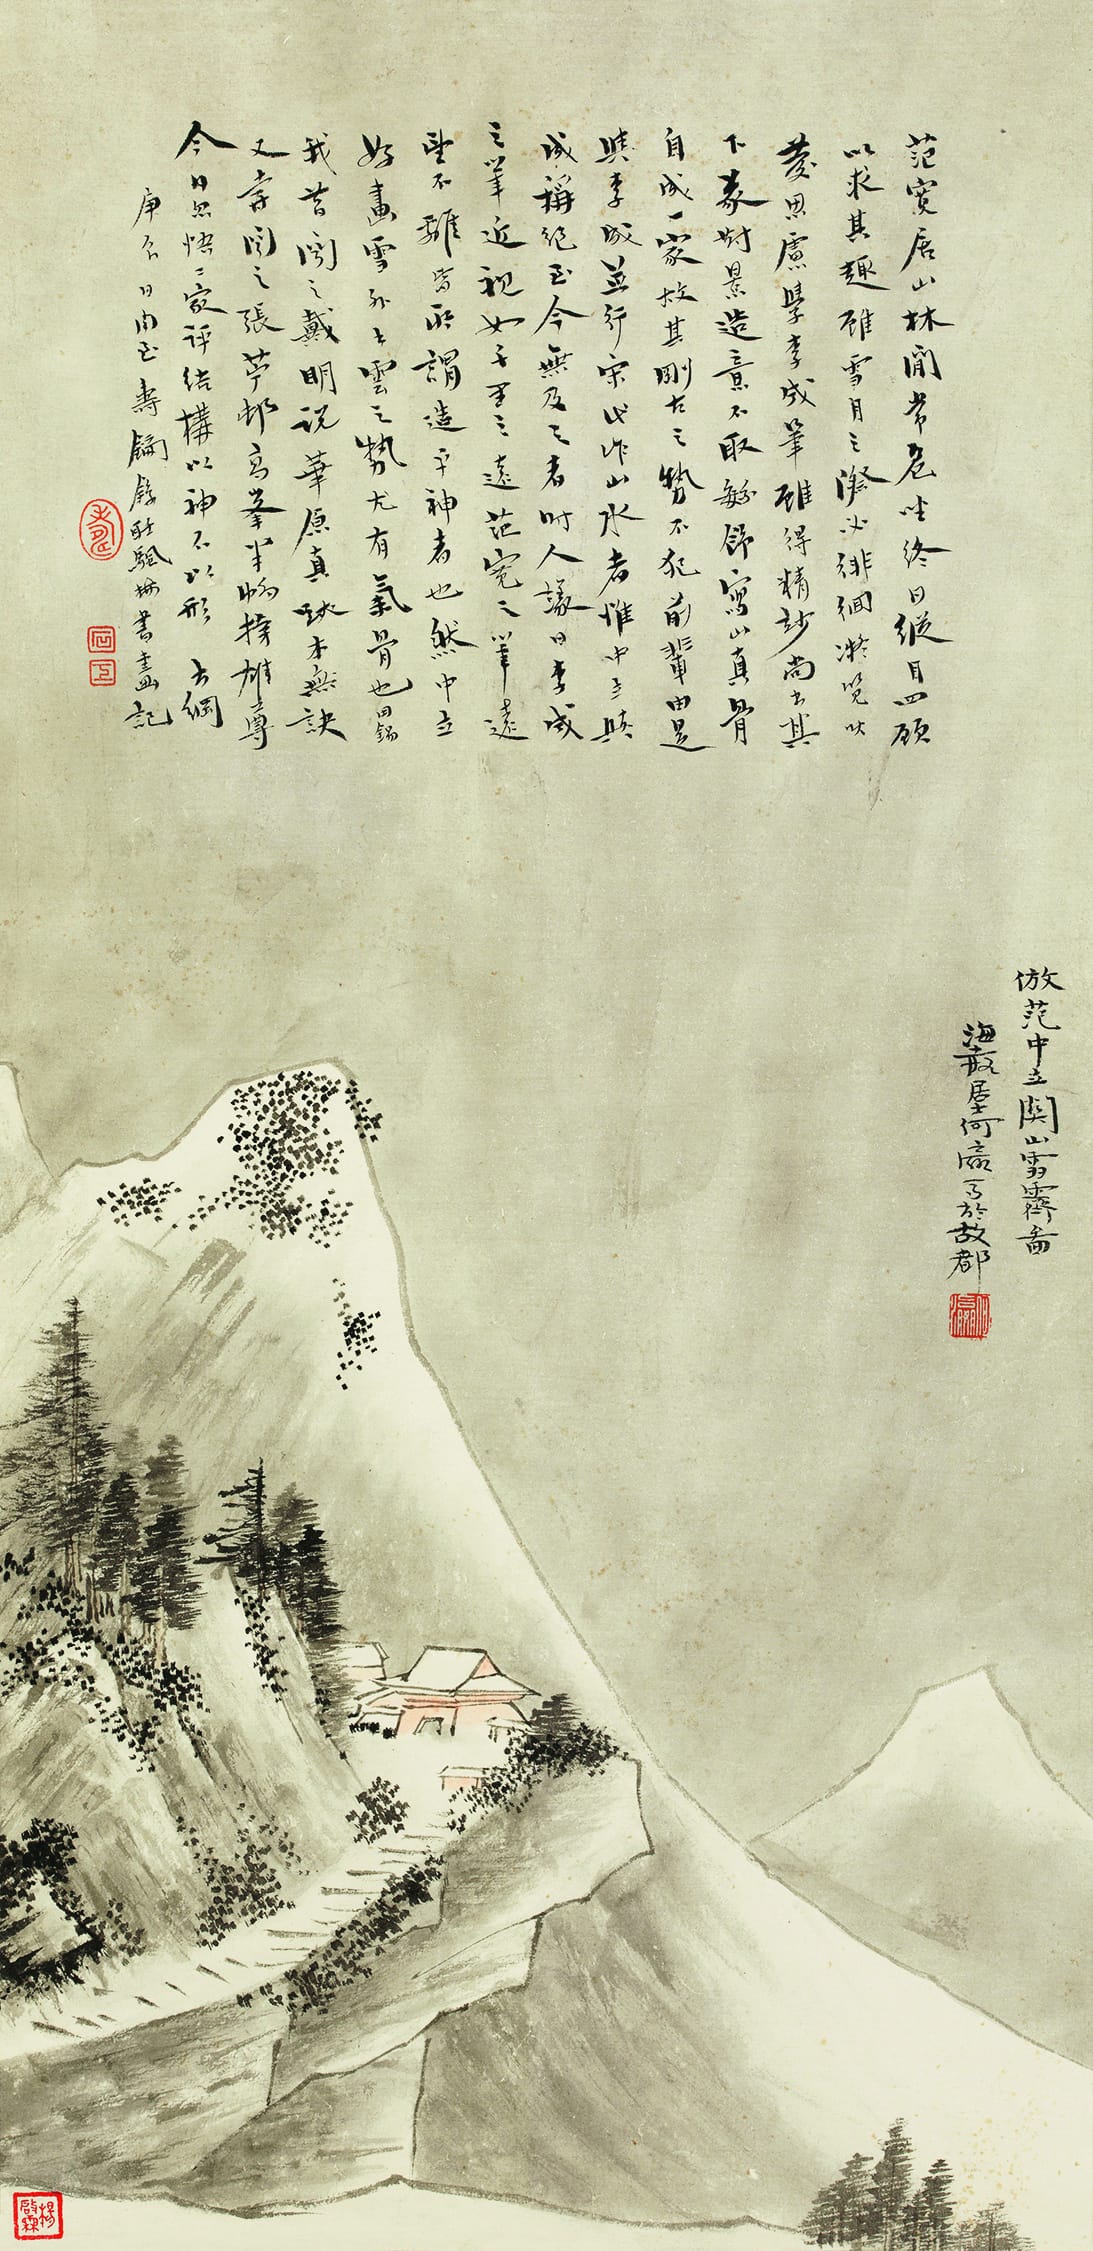 范寬居山林間常危坐終日縱目四顧
以求其趣雖雪月之際必徘徊凝覽以
發思慮學李成筆雖得精妙尚出其
下遂對景造意不取繁飾寫山真骨
自成一家故其剛古之勢不犯前輩由是
與李成並行宋代作山水者惟中立與
成稱絕至今無及之者時人議曰李成
之筆近視如千里之遠范寬之筆遠
望不離皆所謂造乎神者也然中立
好畫雪 出雲之勢尤有氣骨也
我昔聞之戴明說華原真跡本無訣
又嘗聞之張 邨高峯半幅撐雄尊
今日忽悟二家評結構以神不以形
庚 日南至壽 書畫記
倣范中立關山雪霽圖
海 居士何瀛 於故都
何瀛
楊啟霖